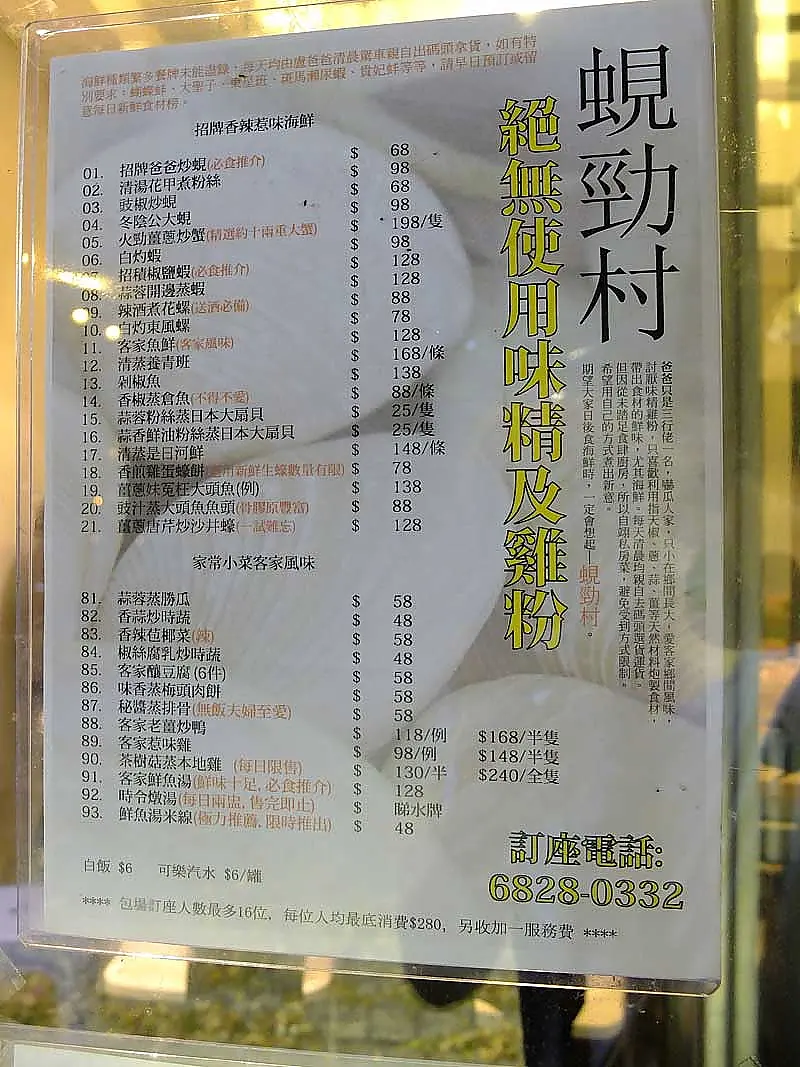 海鮮種類繁多餐牌未能盡錄，每天均由盧爸爸清晨駕車親自出碼頭拿貨，如有特
別要求：蟶蠔蚌、大聖子、東星班、斑馬瀨尿蝦、貴妃蚌等等，請早日預訂或留
意每日新鮮食材榜。
招牌香辣惹味海鮮
01. 招牌爸爸炒蜆(必食推介) $ 68
02. 清湯花甲煮粉絲 $ 98
03. 豉椒炒蜆 $ 68
04. 冬陰公大蜆 $ 98
05. 火勁薑蔥炒蟹(精選約十兩重大蟹) $ 198/隻
06. 白灼蝦 $ 98
07. 招積椒鹽蝦(必食推介) $ 128
08. 蒜蓉開邊蒸蝦 $ 128
09. 辣酒煮花螺(送酒必備) $ 88
10. 白灼東風螺 $ 78
11. 客家魚鮮(客家風味) $ 128
12. 清蒸養青班 $ 168/條
13. 剁椒魚 $ 138
14. 香椒蒸倉魚(不得不愛) $ 88/條
15. 蒜蓉粉絲蒸日本大扇貝 $ 25/隻
16. 蒜香鮮油粉絲蒸日本大扇貝 $ 25/隻
17. 清蒸是日河鮮 $ 148/條
18. 香煎雞蛋蠔餅(選用新鮮生蠔數量有限) $ 78
19. 薑蔥妹冤枉大頭魚(例) $ 138
20. 豉汁蒸大頭魚魚頭(骨膠原豐富) $ 88
21. 薑蔥唐芹炒沙井蠔(一試難忘) $ 128
家常小菜客家風味
81. 蒜蓉蒸勝瓜 $ 58
82. 香蒜炒時蔬 $ 48
83. 香辣苞椰菜(辣) $ 58
84. 椒絲腐乳炒時蔬 $ 48
85. 客家釀豆腐(6件) $ 58
86. 味香蒸梅頭肉餅 $ 58
87. 秘醬蒸排骨(無飯夫婦至愛) $ 58
88. 客家老薑炒鴨 $ 118/例 $168/半隻
89. 客家惹味雞 $ 98/例 $148/半隻
90. 茶樹菇蒸本地雞 (每日限售) $ 130/半 $240/全隻
91. 客家鮮魚湯(鮮味十足, 必食推介) $ 128
92. 時令燉湯(每日兩盅, 售完即止) $ 睇水牌
93. 鮮魚湯米線(極力推薦, 限時推出) $ 48
白飯 $6 可樂汽水 $6/罐
**** 包場訂座人數最多16位, 每位人均最底消費$280, 另收加一服務費 ****
蜆勁村
絕無使用味精及雞粉
爸爸只是三行佬一名，嚇瓜人家，只小在鄉間長大，愛客家鄉間風味，
討厭味精雞粉，只喜歡利用指天椒、蔥、蒜、薑等天然材料炮製食材，
帶出食材的鮮味，尤其海鮮。每天清晨均親自去碼頭選貨運貨。
但因從未踏足食肆廚房，所以自翊私房菜，避免受到方式限制，
希望用自己的方式煮出新意。
期望大家日後食海鮮時，一定會想起—蜆勁村。
訂座電話:
6828-0332